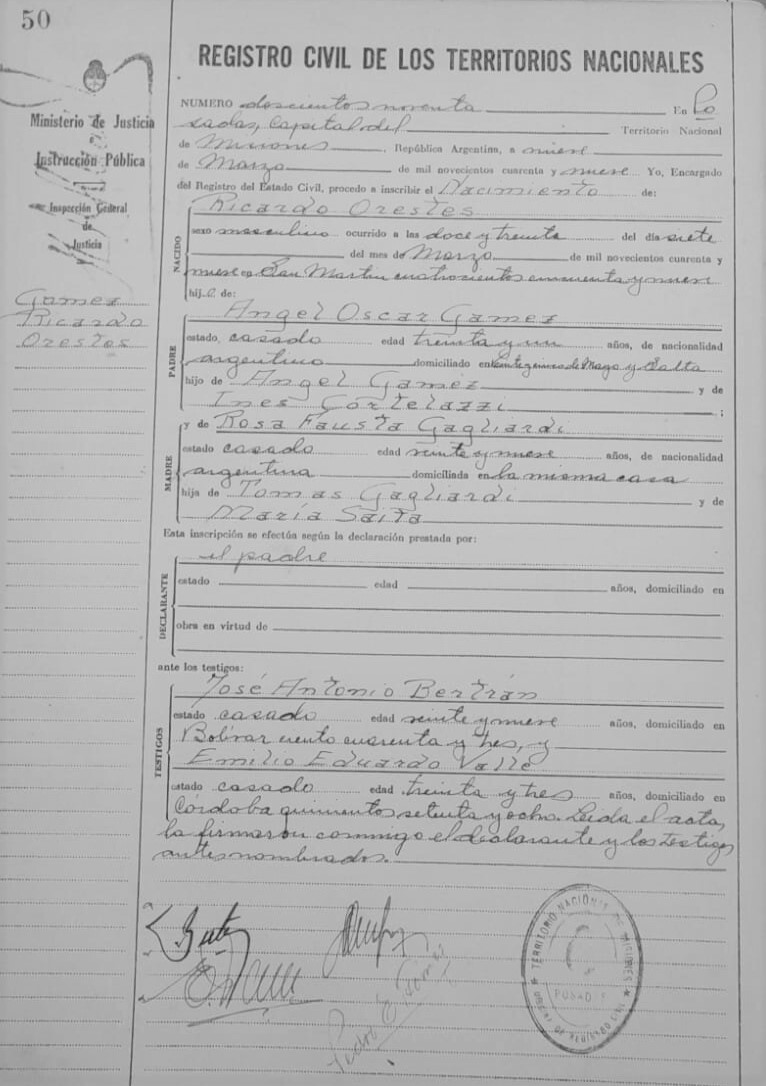 50
REGISTRO CIVIL DE LOS TERRITORIOS NACIONALES
Ministerio de Justicia
e
Instrucción Pública
Inspección General
de
Justicia
Gamez
Ricardo
Orestes
NUMERO doscientos noventa En Po
sadas, Capital del Territorio Nacional
de Misiones, República Argentina, a nueve
de Marzo de mil novecientos cuarenta y nueve Yo, Encargado
del Registro del Estado Civil, procedo a inscribir el Nacimiento de:
NACIDO
Ricardo Orestes
sexo masculino ocurrido a las doce y treinta del día siete
del mes de Marzo de mil novecientos cuarenta y
nueve en San Martin cuatrocientos cincuenta y nueve
hijo de:
PADRE
Angel Oscar Gamez
estado, casado edad treinta y un años, de nacionalidad
argentino domiciliado en veinticinco de Mayo y Salta
hijo de Angel Gamez y de
Ines Cortelazzi;
MADRE
y de Rosa Fausta Gagliardi
estado casado edad veinte y nueve años, de nacionalidad
argentina domiciliada en la misma casa
hija de Tomas Gagliardi y de
María Saita
Esta inscripción se efectúa según la declaración prestada por:
DECLARANTE
el padre
estado edad años, domiciliado en
obra en virtud de
ante los testigos:
TESTIGOS
José Antonio Bertrán
estado casado edad veinte y nueve años, domiciliado en
Bolívar ciento cuarenta y tres, y
Emilio Eduardo Valle
estado casado edad treinta y tres años, domiciliado en
Córdoba quinientos setenta y ocho. Leida el acta,
la firmaron conmigo el declarante y los testigos
antes nombrados.
Pedro E. Gomez
TERRITORIO NACIONAL DE MISIONES
POSADAS